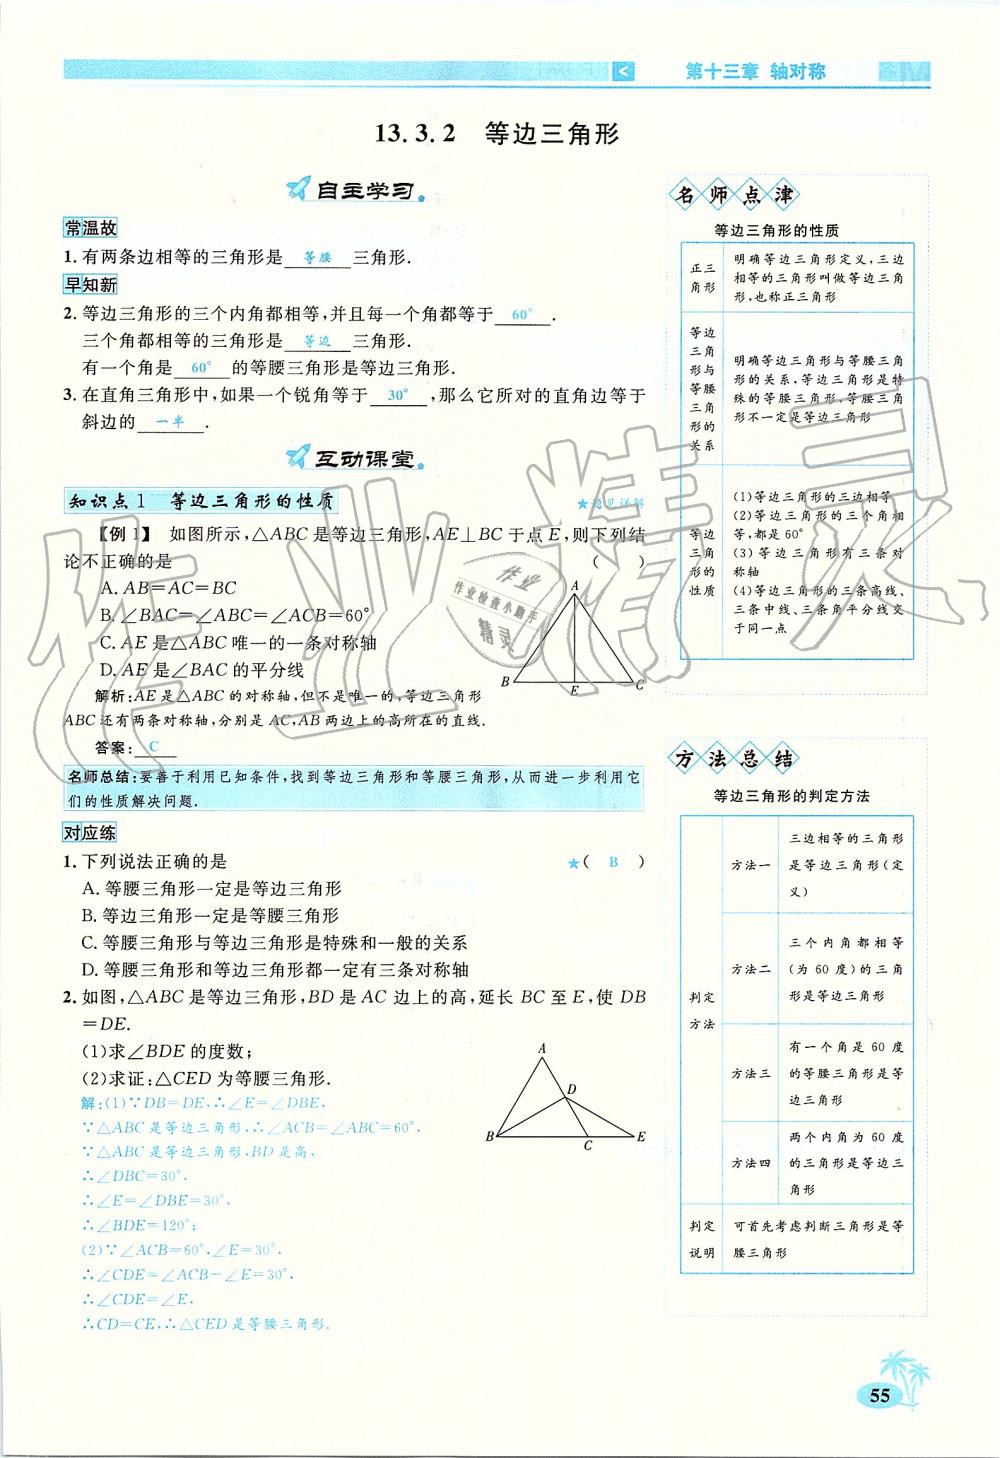 第十三章 轴对称
13.3.2 等边三角形
自主学习
常温故
1.有两条边相等的三角形是 等腰 三角形.
早知新
2.等边三角形的三个内角都相等,并且每一个角都等于 60° .
三个角都相等的三角形是 等边 三角形.
有一个角是 60° 的等腰三角形是等边三角形.
3.在直角三角形中,如果一个锐角等于 30° ,那么它所对的直角边等于
斜边的 一半 .
互动课堂
知识点1 等边三角形的性质
★题见详解
【例1】 如图所示,△ABC是等边三角形,AE⊥BC于点E,则下列结
论不正确的是 ( )
A.AB=AC=BC
B.∠BAC=∠ABC=∠ACB=60°
C.AE是△ABC唯一的一条对称轴
D.AE是∠BAC的平分线
A
B
E
C
解析:AE是△ABC的对称轴,但不是唯一的,等边三角形
ABC还有两条对称轴,分别是AC,AB两边上的高所在的直线.
答案: C
名师总结:要善于利用已知条件,找到等边三角形和等腰三角形,从而进一步利用它
们的性质解决问题.
对应练
1.下列说法正确的是 ★( B )
A.等腰三角形一定是等边三角形
B.等边三角形一定是等腰三角形
C.等腰三角形与等边三角形是特殊和一般的关系
D.等腰三角形和等边三角形都一定有三条对称轴
2.如图,△ABC是等边三角形,BD是AC边上的高,延长BC至E,使DB
=DE.
(1)求∠BDE的度数;
(2)求证:△CED为等腰三角形.
A
D
B
C
E
解:(1)∵DB=DE,∴∠E=∠DBE.
∵△ABC是等边三角形,∴∠ACB=∠ABC=60°.
∵△ABC是等边三角形,BD是高.
∴∠DBC=30°.
∴∠E=∠DBE=30°.
∴∠BDE=120°;
(2)∵∠ACB=60°,∠E=30°.
∴∠CDE=∠ACB-∠E=30°.
∴∠CDE=∠E.
∴CD=CE,∴△CED是等腰三角形.
名师点津
等边三角形的性质
正三
角形
明确等边三角形定义,三边
相等的三角形叫做等边三角
形,也称正三角形
等边
三角
形与
等腰
三角
形的
关系
明确等边三角形与等腰三角
形的关系,等边三角形是特
殊的等腰三角形,等腰三角
形不一定是等边三角形
等边
三角
形的
性质
(1)等边三角形的三边相等
(2)等边三角形的三个角相
等,都是60°
(3)等边三角形有三条对
称轴
(4)等边三角形的三条高线、
三条中线、三条角平分线交
于同一点
方法总结
等边三角形的判定方法
判定
方法
方法一
三边相等的三角形
是等边三角形(定
义)
方法二
三个内角都相等
(为60度)的三角
形是等边三角形
方法三
有一个角是60度
的等腰三角形是等
边三角形
方法四
两个内角为60度
的三角形是等边三
角形
判定
说明
可首先考虑判断三角形是等
腰三角形
作业精灵
作业
作业检查小助手
精灵
55